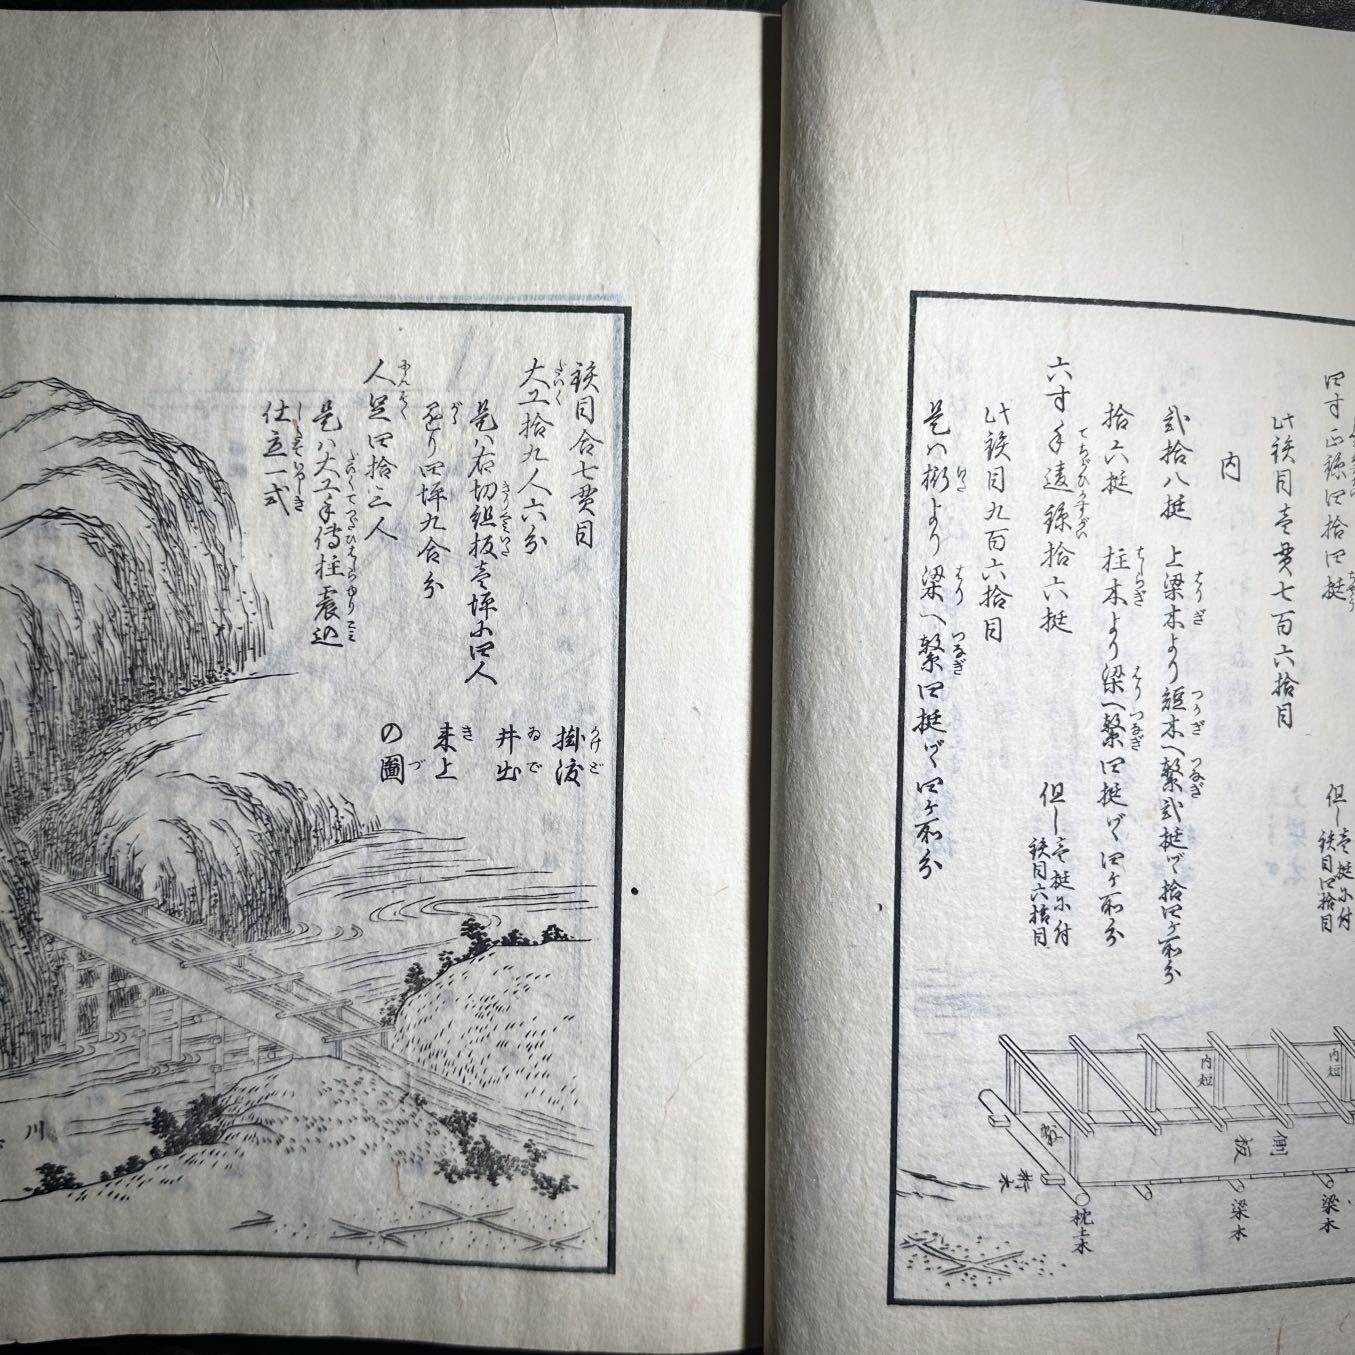 四寸正鎹四拾四挺
但し壱挺ニ付
鉄目四拾目
此鉄目壱貫七百六拾目
内
弐拾八挺 上梁木より短木へ繋弐挺ヅ拾四ヶ所分
拾六挺 柱木より梁へ繋四挺ヅ四ヶ所分
六寸手違鎹拾六挺
但し壱挺ニ付
鉄目六拾目
此鉄目九百六拾目
是ハ桁より梁へ繋四挺ヅ四ヶ所分
内短
内短
側板
梁木
梁木
枕土木
鉄目合七貫目
大工拾九人六分
是ハ右切組板壱坪ニ四人
が
をり四坪九合分
人足四拾三人
是ハ大工手傳柱震込
仕立一式
掛渡
井出
来上
の圖
川